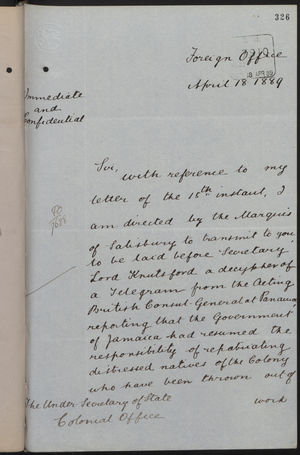 326
Foreign Office
18 APR 89
April 18 1889
Immediate
and
Confidential
Sir,
with reference to my
letter of the 15th instant, I
am directed by the Marquis
of Salisbury to transmit to you
to be laid before Secretary
Lord Knutsford a decypher of
a Telegram from the Acting
British Consul General at Panama,
reporting that the Government
of Jamaica had resumed the
responsibility of repatriating
distressed natives of the Colony
who have been thrown out of
work
The Under Secretary of State
Colonial Office